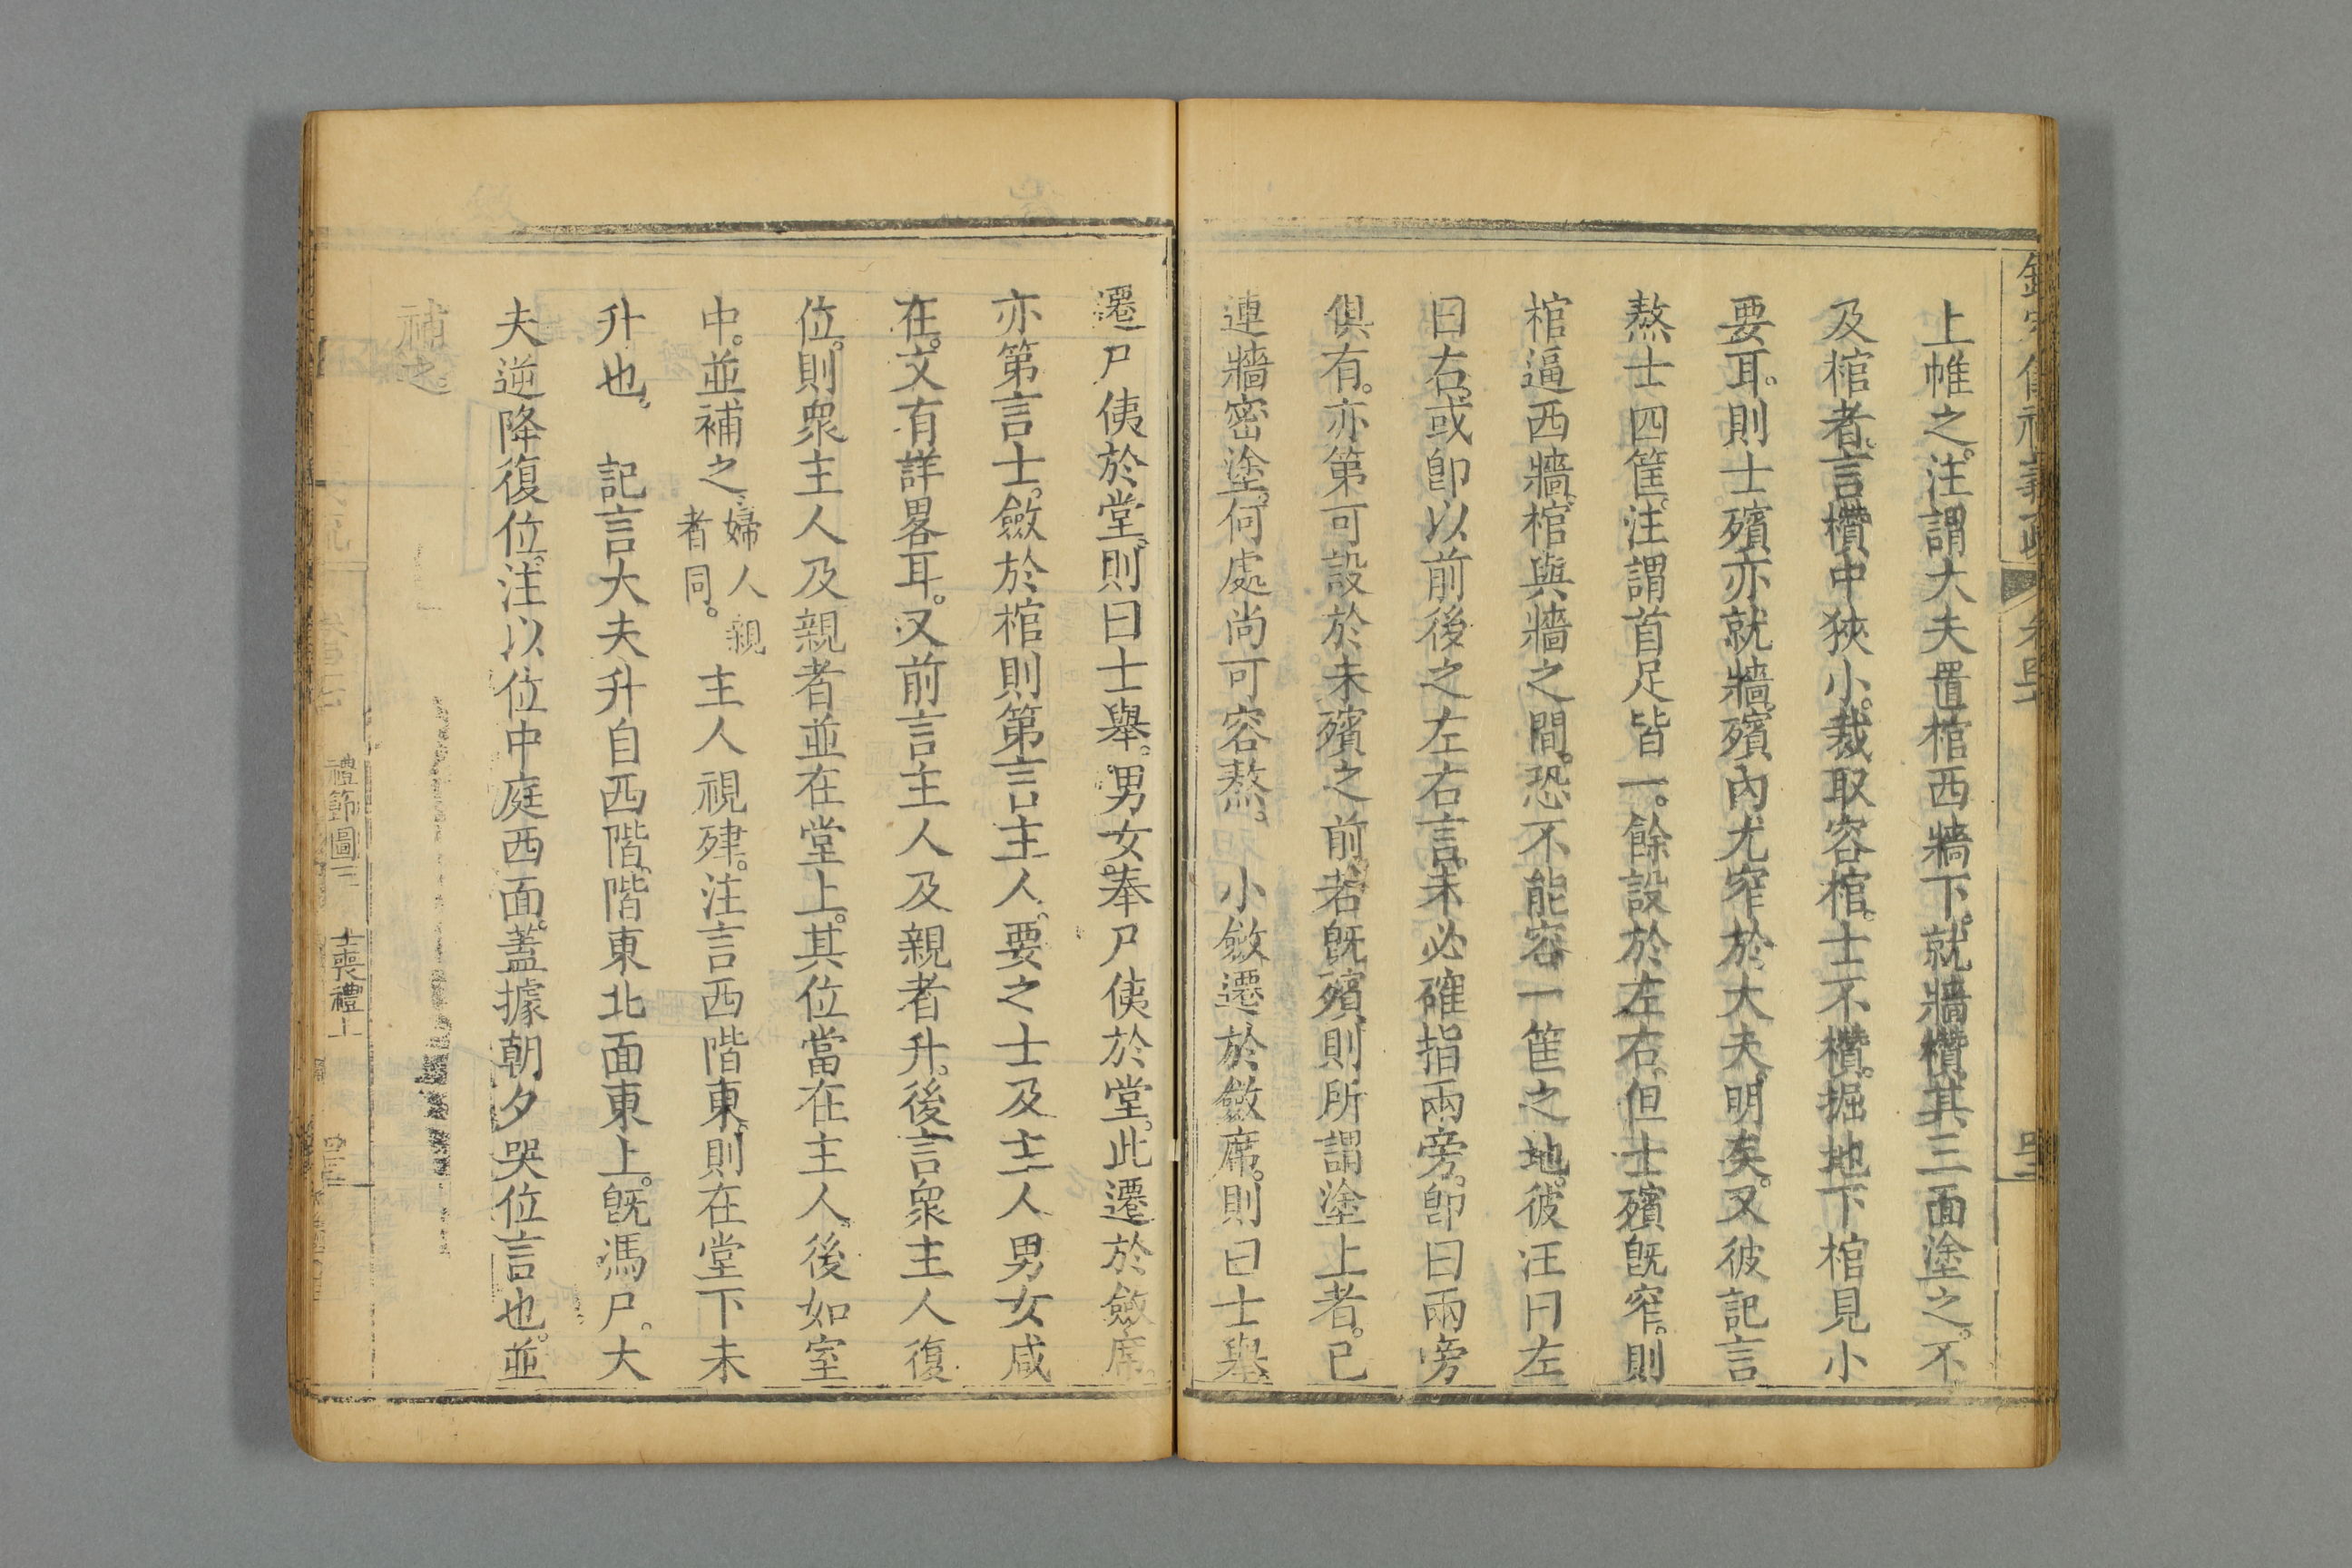 上帷之。注謂大夫置棺西牆下。就牆欑其三面塗之。不
及棺者。言欑中狹小。裁取容棺。士不欑。掘地下棺見小
要耳。則士殯亦就牆。殯內尤窄於大夫。明矣。又彼記言
熬士四筐。注謂首足皆一。餘設於左右。但士殯旣窄。則
棺逼西牆。棺與牆之間。恐不能容一筐之地。彼注曰左
曰右。或卽以前後之左右言。未必確指兩旁。卽曰兩旁
俱有。亦第可設於未殯之前。若旣殯則所謂塗上者。已
連牆密塗。何處尚可容熬。 小斂遷於斂席。則曰士舉
遷尸侇於堂。則曰士舉。男女奉尸侇於堂。此遷於斂席。
亦第言士。斂於棺則第言主人。要之士及主人男女咸
在。文有詳畧耳。又前言主人及親者升。後言衆主人復
位。則衆主人及親者並在堂上。其位當在主人後如室
中。並補之。婦人親
者同。 主人視肂。注言西階東。則在堂下未
升也。 記言大夫升自西階。階東北面東上。旣馮尸。大
夫逆降復位。注以位中庭西面。蓋據朝夕哭位言也。並
補之
禮節圖三 士喪禮上